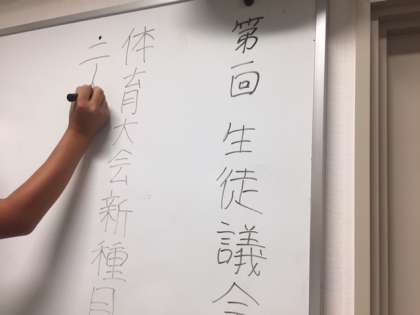 第一回 生徒議会
体育大会新種目
ニ